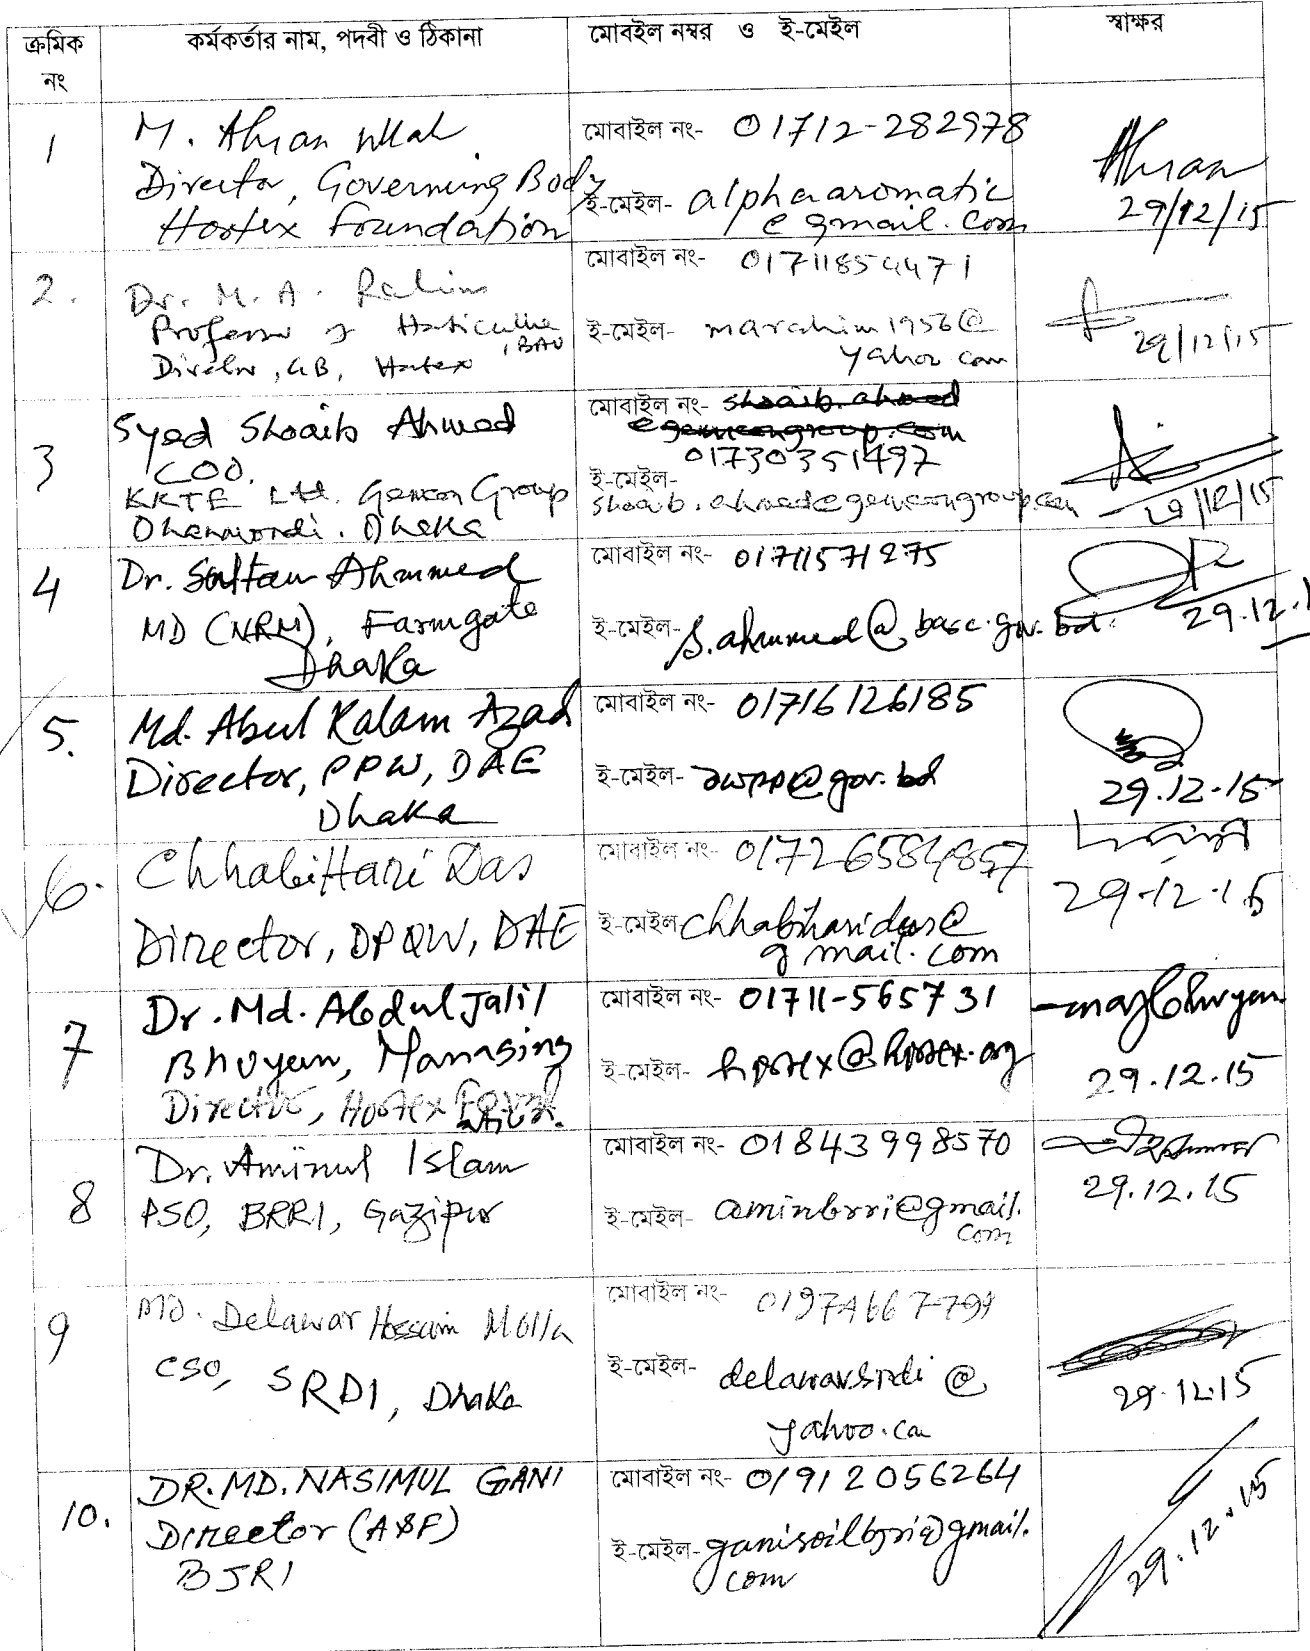 ক্রমিক নং
কর্মকর্তার নাম, পদবী ও ঠিকানা
মোবইল নম্বর ও ই-মেইল
স্বাক্ষর
1
M. Ahsan Ullah
Director, Governing Body
Hortex Foundation
মোবাইল নং- 01712-282978
ই-মেইল- alphaaromatic
@gmail.com
Ahsan
29/12/15
2.
Dr. M. A. Rahim
Professor of Horticulture
, BAU
Director, GB, Hortex
মোবাইল নং- 01711854471
ই-মেইল- marahim1956@
yahoo com
29/12/15
3
Syed Shoaib Ahmed
COO.
KKTE Ltd. Gemcon Group
Dhanmondi. Dhaka
মোবাইল নং- shoaib.ahmed
@gemcongroup.com
01730351497
ই-মেইল-
shoaib.ahmed@gemcongroup.com
29/12/15
4
Dr. Sultan Ahmmed
MD (NRM), Farmgate
Dhaka
মোবাইল নং- 01711571275
ই-মেইল- s.ahmmed@barc.gov.bd.
29.12.1
5.
Md. Abul Kalam Azad
Director, PPW, DAE
Dhaka
মোবাইল নং- 01716126185
ই-মেইল- dwpp@gov.bd
29.12.15
6.
Chhabi Hari Das
Director, DPQW, DAE
মোবাইল নং- 01726584857
ই-মেইল chhabiharidas@
gmail.com
29-12-15
7
Dr. Md. Abdul Jalil
Bhuyan, Managing
Director, Hortex Found
ation.
মোবাইল নং- 01711-565731
ই-মেইল- hortex@hortex.org
majbhuyan
29.12.15
8
Dr. Aminul Islam
PSO, BRRI, Gazipur
মোবাইল নং- 01843998570
ই-মেইল- aminbrri@gmail.
com
29.12.15
9
MD. Delawar Hossain Molla
CSO, SRDI, Dhaka
মোবাইল নং-
ই-মেইল- delawarsrdi@
yahoo.com
29.12.15
10.
DR. MD. NASIMUL GANI
Director (A&F)
BJRI
মোবাইল নং- 01912056264
ই-মেইল- ganisoilbjri@gmail.
com
29.12.15